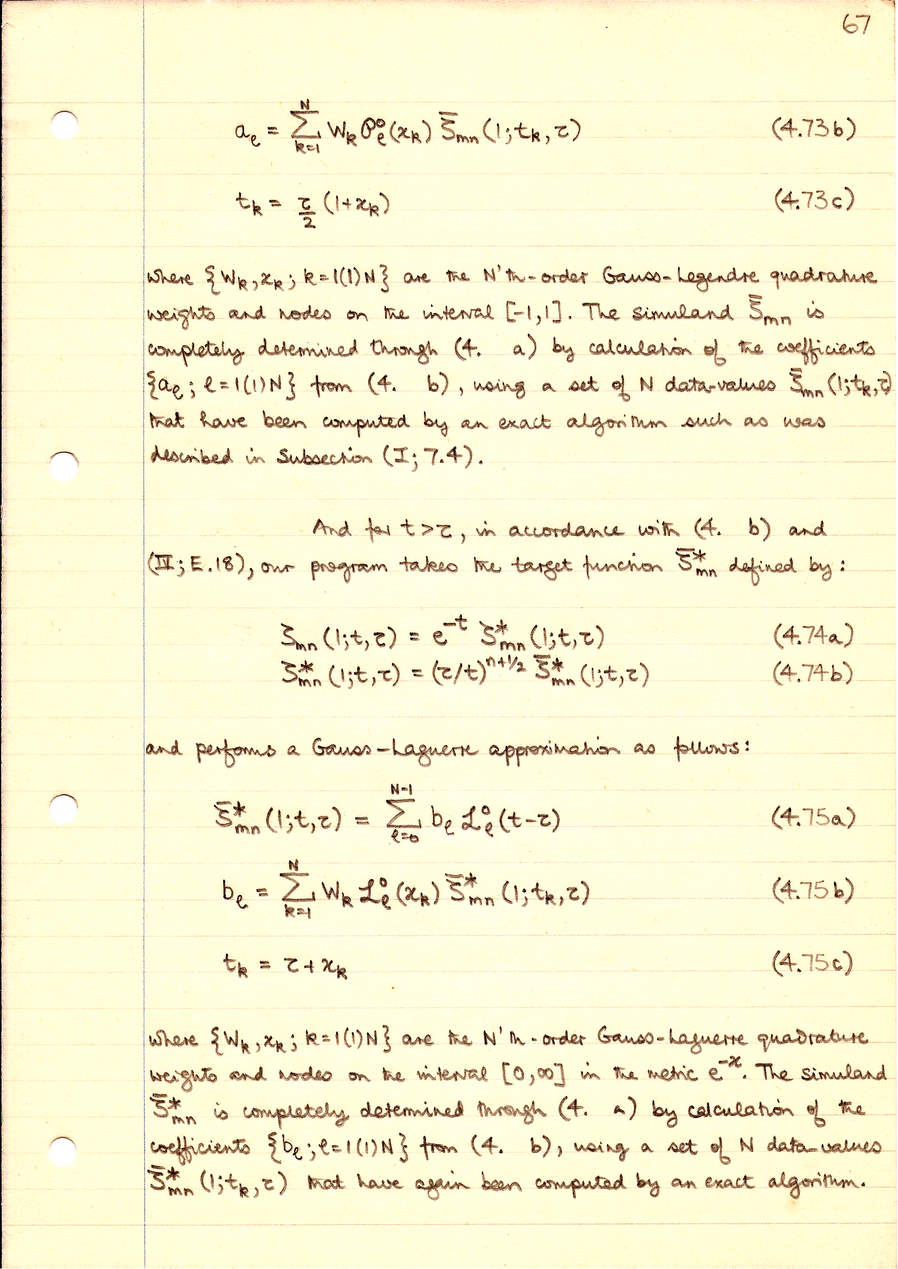 67
a_ℓ = Σ_{k=1}^{N} W_k 𝒫_ℓ^0(x_k) ζ̿_mn(1;t_k,τ) (4.73b)
t_k = τ/2 (1+x_k) (4.73c)
where {W_k,x_k; k=1(1)N} are the N'th-order Gauss-Legendre quadrature
weights and nodes on the interval [-1,1]. The simuland ζ̿_mn is
completely determined through (4. a) by calculation of the coefficients
{a_ℓ; ℓ=1(1)N} from (4. b), using a set of N data-values ζ̿_mn(1;t_k,τ)
that have been computed by an exact algorithm such as was
described in Subsection (I; 7.4).
And for t>τ, in accordance with (4. b) and
(IV; E.18), our program takes the target function ζ̅*_mn defined by:
ζ_mn(1;t,τ) = e^{-t} ζ*_mn(1;t,τ) (4.74a)
ζ*_mn(1;t,τ) = (τ/t)^{n+1/2} ζ̅*_mn(1;t,τ) (4.74b)
and performs a Gauss-Laguerre approximation as follows:
ζ̅*_mn(1;t,τ) = Σ_{ℓ=0}^{N-1} b_ℓ ℒ_ℓ^0(t-τ) (4.75a)
b_ℓ = Σ_{k=1}^{N} W_k ℒ_ℓ^0(x_k) ζ̅*_mn(1;t_k,τ) (4.75b)
t_k = τ+x_k (4.75c)
where {W_k,x_k; k=1(1)N} are the N'th-order Gauss-Laguerre quadrature
weights and nodes on the interval [0,∞] in the metric e^{-x}. The simuland
ζ̅*_mn is completely determined through (4. a) by calculation of the
coefficients {b_ℓ; ℓ=1(1)N} from (4. b), using a set of N data-values
ζ̅*_mn(1;t_k,τ) that have again been computed by an exact algorithm.